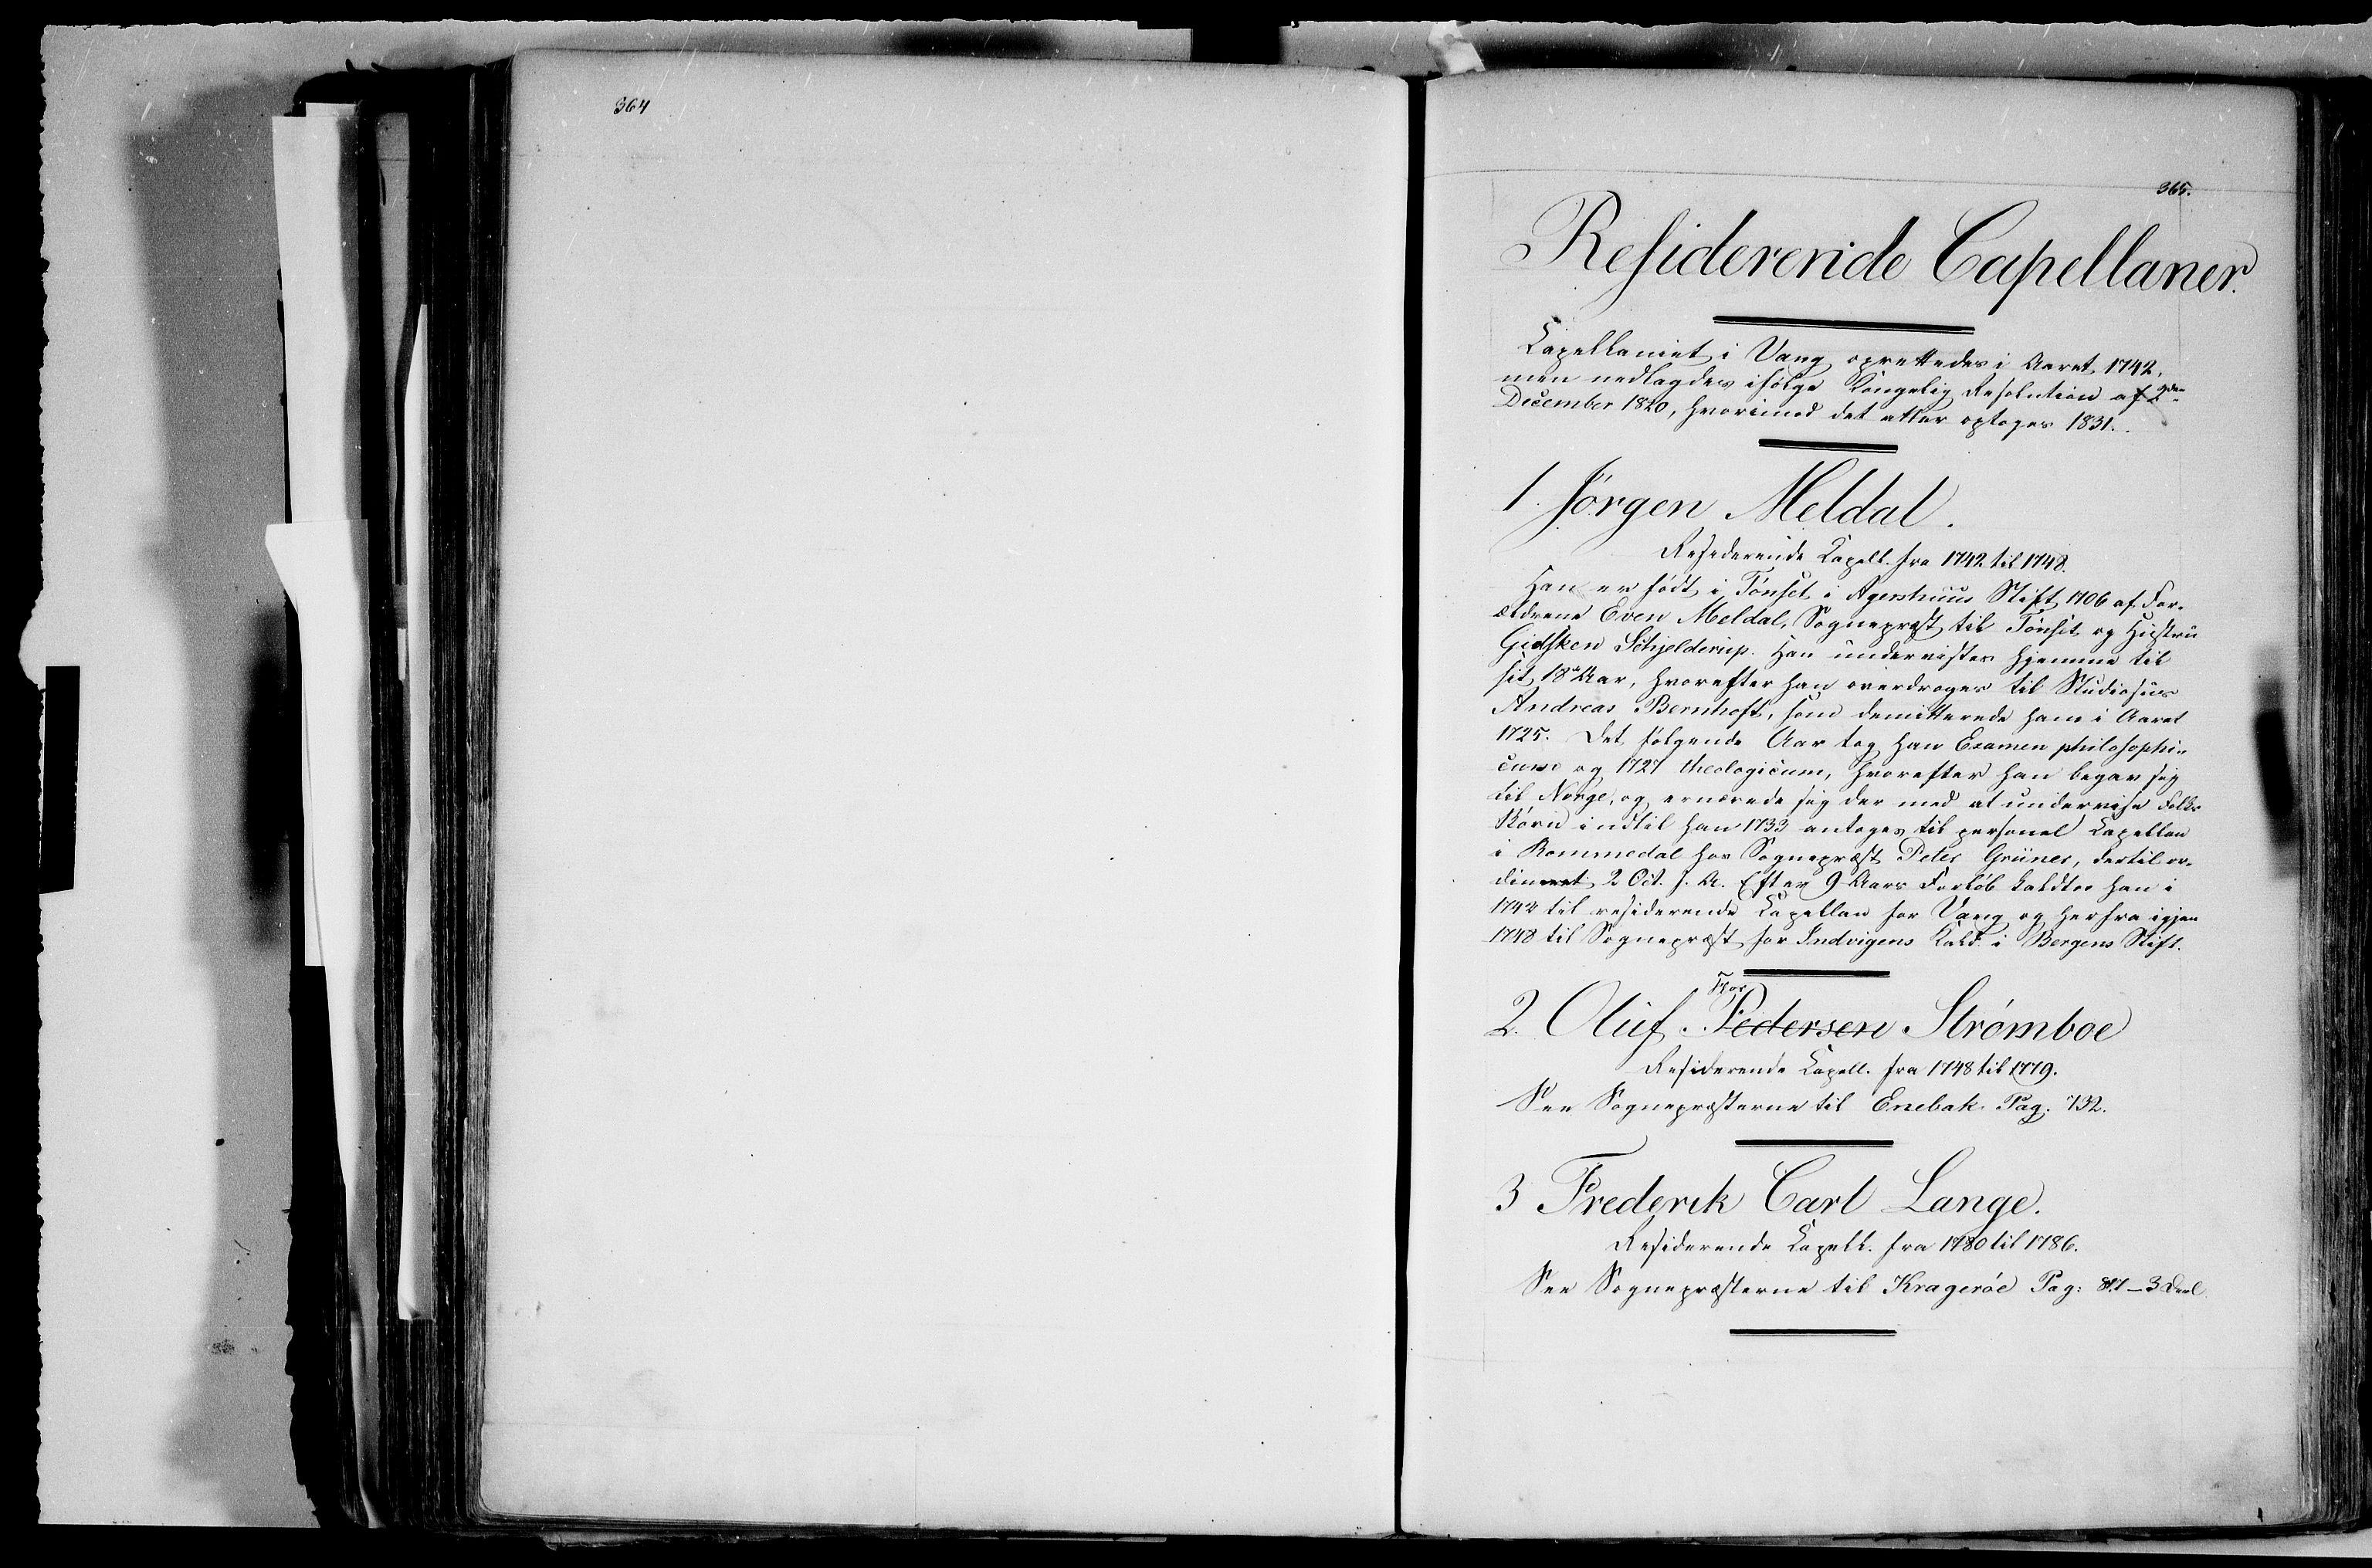 364
365.
Residerende Capellaner.
Capellaniet i Vang oprettedes i Aaret 1742,
men nedlagdes ifølge Kongelig Resolution af 2den
December 1820, hvorimod det atter optoges 1831.
1. Jørgen Meldal.
Residerende Capell. fra 1742 til 1748.
Han er født i Tønset i Agershuus Stift 1706 af For-
ældrene Even Meldal, Sognepræst til Tønset og Hustru
Gidsken Schjelderup. Han undervistes hjemme til
sit 18de Aar, hvorefter han overdroges til Studiosus
Andreas Bernhoft, som demitterede ham i Aaret
1725. Det følgende Aar tog han Examen philosophi-
cum og 1727 theologicum, hvorefter han begav sig
til Norge, og ernærede sig der med at undervise Folks
Børn indtil han 1733 antoges til personel Capellan
i Rommedal hos Sognepræst Peter Grüner, dertil or-
dineret 2 Oct. s. A. Efter 9 Aars Forløb kaldtes han i
1742 til residerende Capellan for Vang og herfra igjen
1748 til Sognepræst for Indvigens Kald i Bergens Stift.
Thor
2. Oluf Pedersen Strømboe
Residerende Capell. fra 1748 til 1779.
See Sognepræsterne til Enebak Pag: 732.
3 Frederik Carl Lange.
Residerende Capell. fra 1780 til 1786.
See Sognepræsterne til Kragerøe Pag: 817 - 3 Deel.